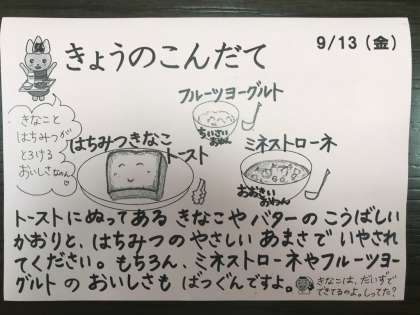 きょうのこんだて
9/13（金）
フルーツヨーグルト
ちいさい
おわん
きなこと
はちみつが
とろける
おいしさなのん♡
はちみつきなこ
トースト
ミネストローネ
おおきい
おわん
トーストにぬってある きなこや バターの こうばしい
かおりと、はちみつの やさしい あまさで いやされ
てください。もちろん、ミネストローネやフルーツヨー
グルト の おいしさも ばつぐんですよ。
きなこは、だいずで
できてるのよ。しってた？